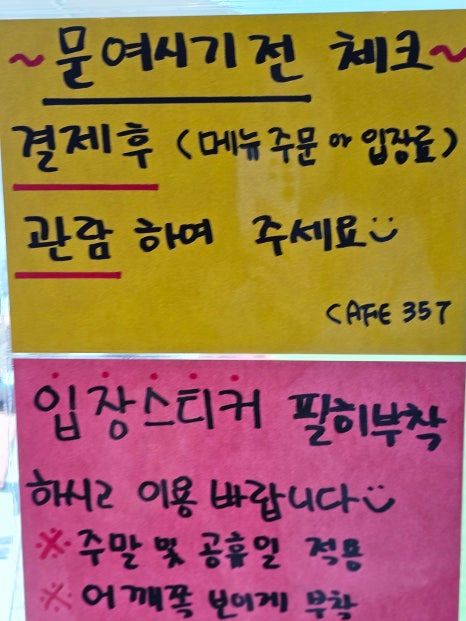 ~문여시기전 체크~
결제후 (메뉴주문 or 입장료)
관람 하여 주세요
CAFE 357
입장스티커 필히부착
하시고 이용 바랍니다
※주말 및 공휴일 적용
※어깨쪽 보이게 부착